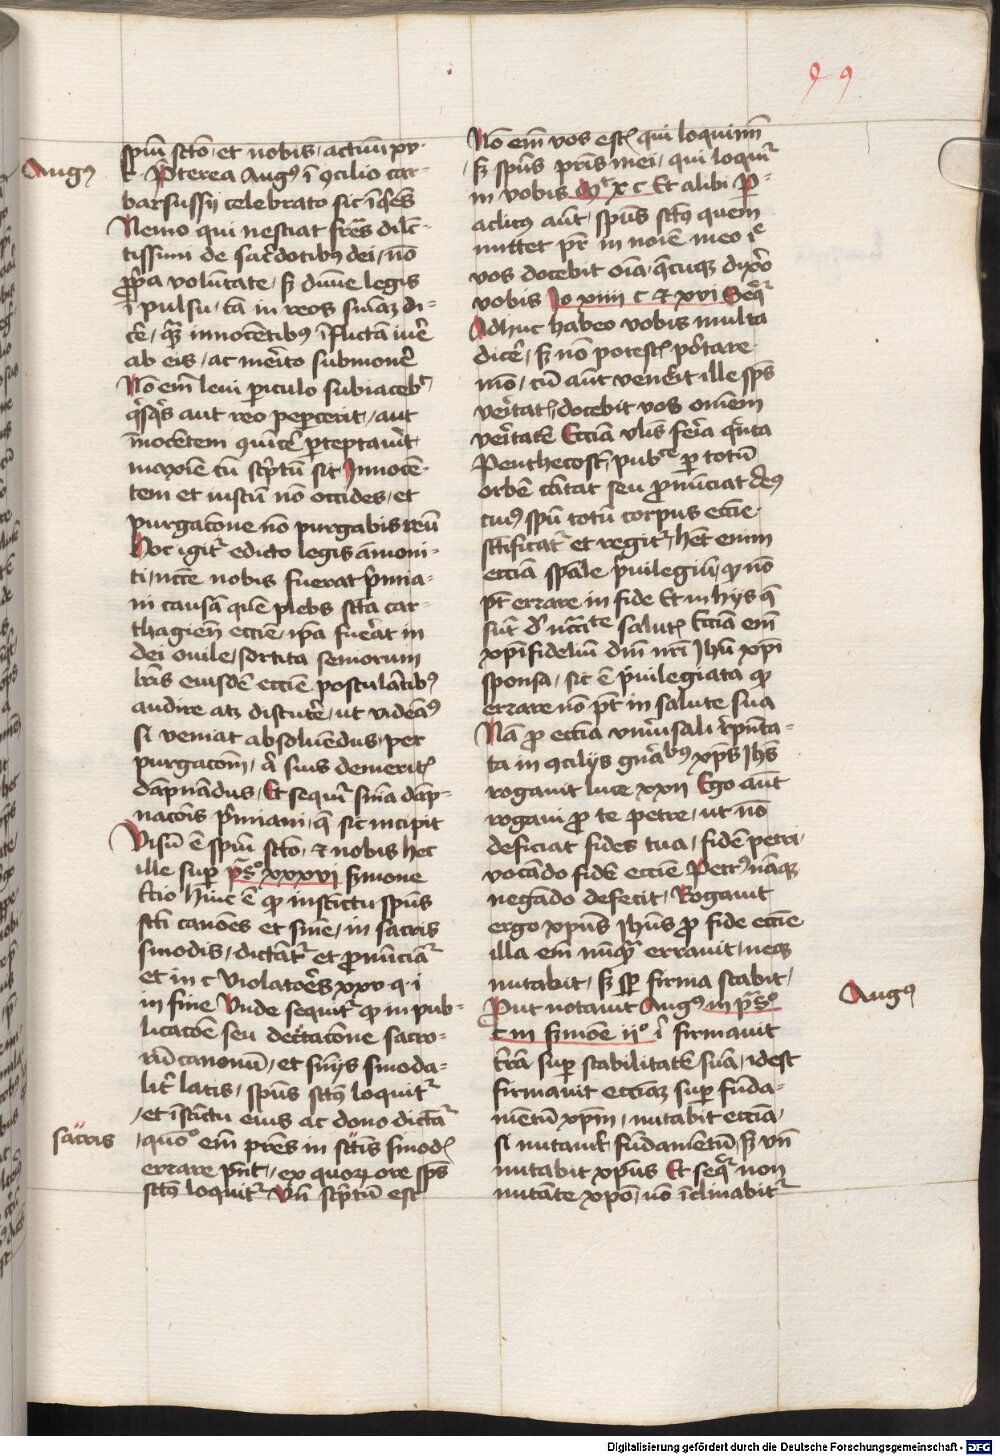 99
spiu̅ scto̅ et nobis / actuu̅ xv
Augꝰ
c. P̅terea Augꝰ i̅ ꝯcilio car-
barsussij celebrato sic i̅q̅es
Nemo qui nesciat fr̅es dilc̅-
tissimi de sac̅dotibꝰ dei / no̅
p̱p̅a volu̅tate / sꝫ diui̅e legis
i̅pulsu / ta̅ in reos sn̅iaꝫ di-
ce̅ / qꝫ̅ innoce̅tibꝰ i̅flicta̅ iu̅e̅
ab eis / ac me̅ito submoue̅
No̅ em̅ leui p̱iculo subiacebt̅
q̅sq̅s aut reo pep̱cerit / aut
i̅noce̅tem
maxie̅ cu̅ sc̅ptu̅ sit Innoce̅-
tem et iustu̅ no̅ occides / et
purgac̅one no̅ purgabis reu̅
Hoc igit̅ edicto legis a̅moni-
ti / nc̅ce nobis fuerat p̅mia-
ni causa̅ que̅ plebs sc̅ta car-
thagien̅ ecc̅ie / ip̅a fue̅at in
dei ouile / sortita seniorum
lr̅is eiusde̅ ecc̅ie postula̅tibꝰ
audire atqꝫ discute̅ / ut videa̅ꝰ
si veniat absolue̅dus / per
purgac̅om̅ / a̅ suis demeritꝭ
da̅pna̅dus / Et sequit̅ sn̅ia da̅p-
nac̅ois p̅miani / q̅ sic incipit
Visu̅ e̅ spiu̅ scto̅ / et nobis hec
ille sup̱ ps̅o xxxvi sꝫmone
t̅cio Hinc e̅ qꝫ instinctu spu̅s
sc̅ti cano̅es et sn̅ie / in sacris
sinodis / dicta̅t̅ et p̱nu̅cia̅t̅
et in c violato̅es xxv q i
in fine Vnde sequit̅ qꝫ in pub-
licac̅oe seu dec̅tac̅one sacro-
ru̅ canonu̅ / et sn̅ijs sinoda-
lit̅ latis / spu̅s sctu̅s loquit̅
/ et i̅sti̅ctu eius ac dono dicta̅t̅
sacris
/ quo̅o em̅ pr̅es in sc̅tis sinodꝭ
errare pn̅t / ex quoꝝ ore sp̅s
sctu̅s loquit̅ Vn̅ sc̅ptu̅ est
No̅ em̅ vos estꝭ qui loquim̅
/ sꝫ spu̅s pr̅is mei / qui loquit̅
in vobis Mt̅ x c Et alibi P̱-
aclitꝰ aut̅ / spu̅s sctu̅s quem
mittet pr̅ in no̅ie meo ie̅
vos docebit o̅ia / q̅cuqꝫ dixe̅o
vobis Jo xiiii c et xvi Seqt̅
Adhuc habeo vobis multa
dice̅ / sꝫ no̅ potestꝭ po̅tare
mo̅ / cu̅ aut̅ ven̅it ille sp̅s
ve̅itatꝭ / docebit vos om̅em
ve̅itate̅ Ecc̅ia vl̅is fe̅ia q̅nta
Penthecostꝭ / pub̅ce p̱ totu̅
orbe̅ ca̅tat seu p̱nu̅ciat de̅ꝰ
cuiꝰ spu̅ totu̅ corpus ecc̅ie
sc̅tificat̅ et regit̅ / he̅t enim
ecc̅ia sp̅ale p̅uilegiu̅ / qꝫ no̅
pt̅ errare in fide Et in hys q̅
su̅t d̅ nc̅cita̅te salutꝭ Ecc̅ia em̅
xp̅ifideliu̅ dn̅i nr̅i Jhu̅ xp̅i
sponsa / sic e̅ p̅uilegiata qꝫ
errare no̅ pt̅ in salute sua
Na̅ p̱ ecc̅ia vniu̅sali rep̅n̅ta-
ta in ꝯcilijs gn̅a̅bꝰ xp̅s Jhs̅
rogauit luce xxii Ego aut̅
rogaui p̱ te petre / ut no̅
deficiat fides tua / fide̅ petri /
voca̅do fide̅ ecc̅ie Petrꝰ na̅qꝫ
nega̅do defecit / Rogauit
ergo xpu̅s Jhu̅s p̱ fide ecc̅ie
illa em̅ nu̅qꝫ̅ errauit / neqꝫ
mutabit / sꝫ sp̱ firma stabit /
Augꝰ
P̱ut notauit Augꝰ in ps̅o
c iii sꝫmo̅e iio i̅ firmauit
t̅ra̅ sup̱ stabilitate̅ sua̅ / idest
firmauit ecc̅iaꝫ sup̱ fu̅da-
me̅tu̅ xp̅m / nutabit ecc̅ia /
si nutau̅it fu̅dame̅tu̅ / sꝫ vn̅
nutabit xpu̅s Et seqt̅ non
nuta̅te xpo̅ / no̅ i̅clinabit̅
Digitalisierung gefördert durch die Deutsche Forschungsgemeinschaft - DFG